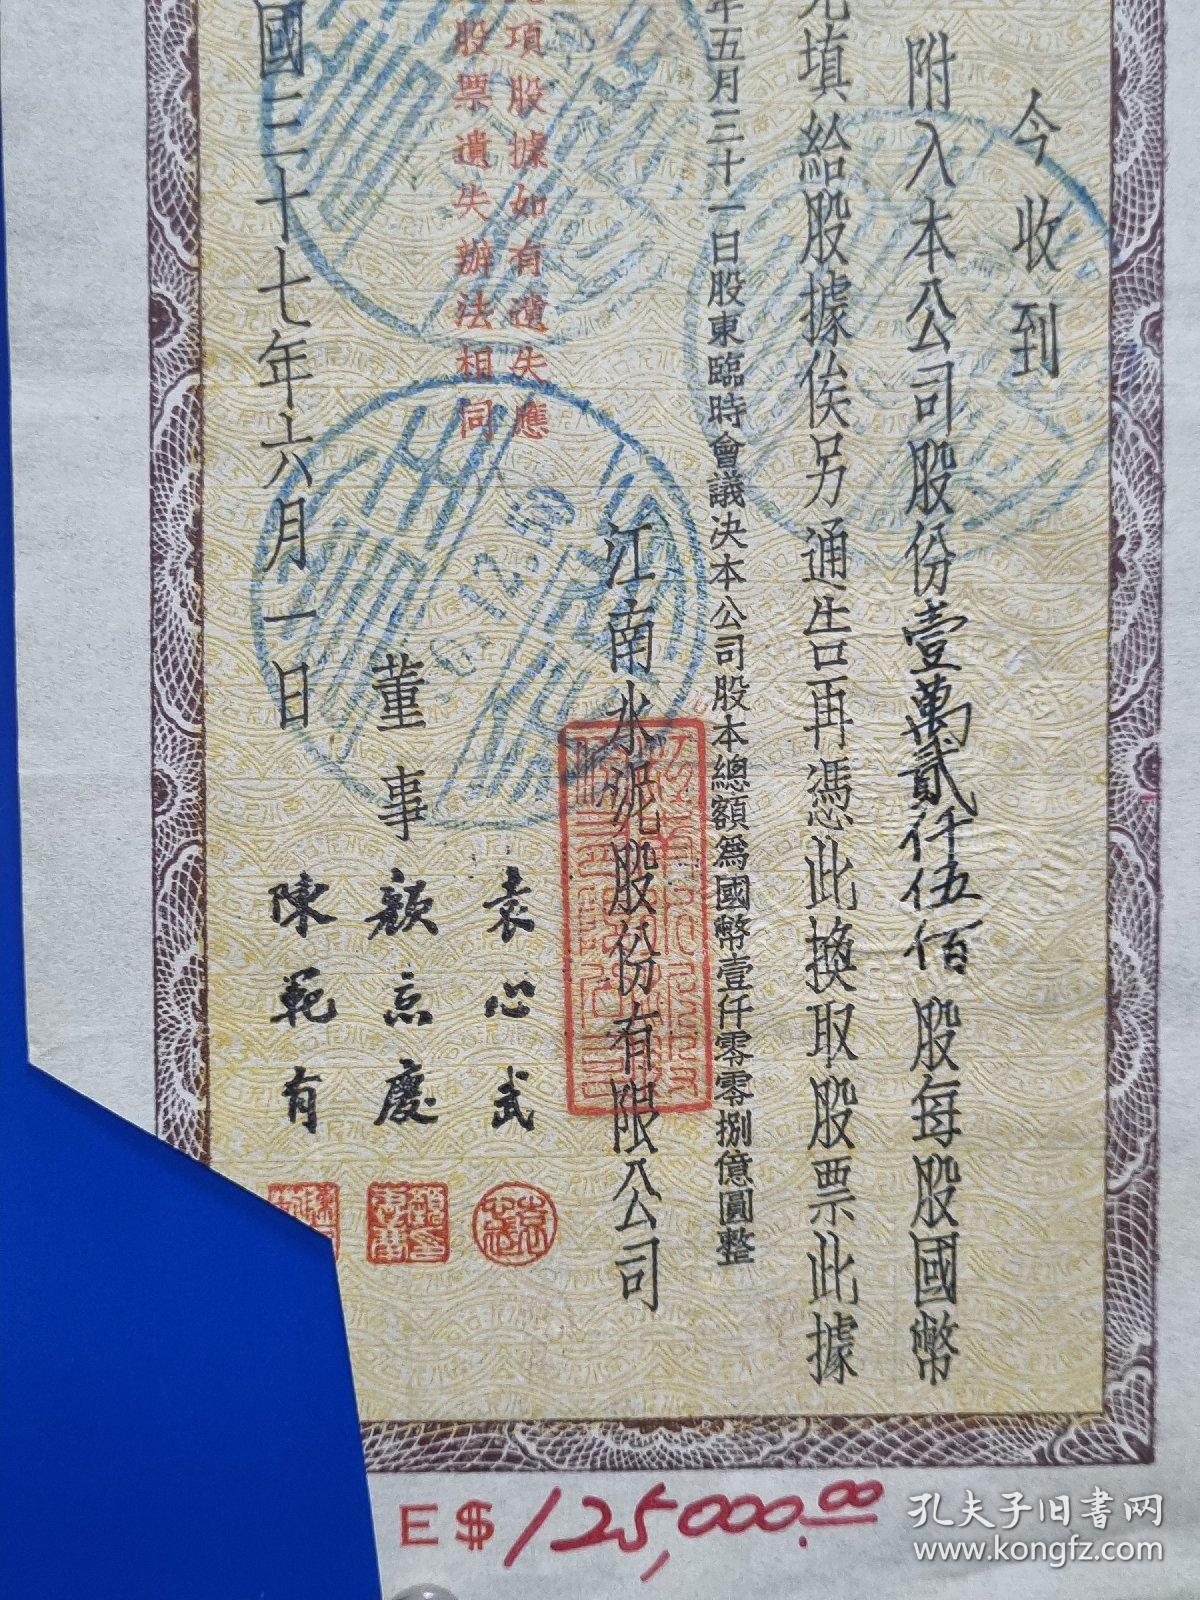 今收到
附入本公司股份壹萬貳仟伍佰股每股國幣
填給股據俟另通告再憑此換取股票此據
年五月三十一日股東臨時會議決本公司股本總額為國幣壹仟零零捌億圓整
江南水泥股份有限公司
項股據如有遺失應
股票遺失辦法相同
袁心武
董事顏惠慶
陳範有
國三十七年六月一日
E$125,000.00
孔夫子旧书网
www.kongfz.com